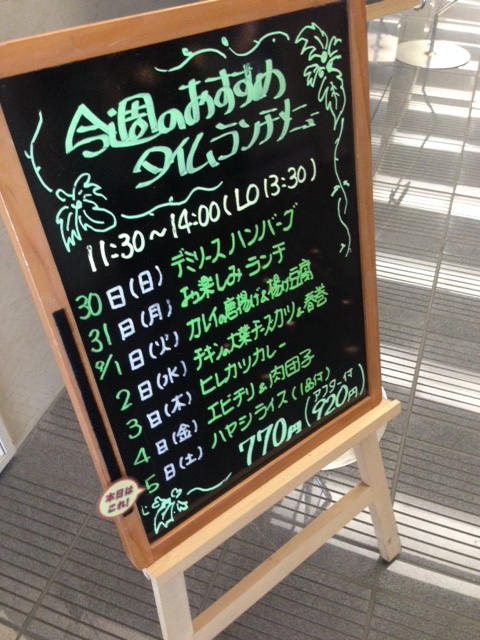 今週のおすすめ
タイムランチメニュー
11:30～14:00(LO 13:30)
30日(日) デミソースハンバーグ
31日(月) お楽しみランチ
9/1日(火) カレイの唐揚げ&揚げ豆腐
2日(水) チキンの大葉チーズカツ&春巻
3日(木) ヒレカツカレー
4日(金) エビチリ&肉団子
5日(土) ハヤシライス(1品付)
770円(アフター付920円)
本日は
これ!